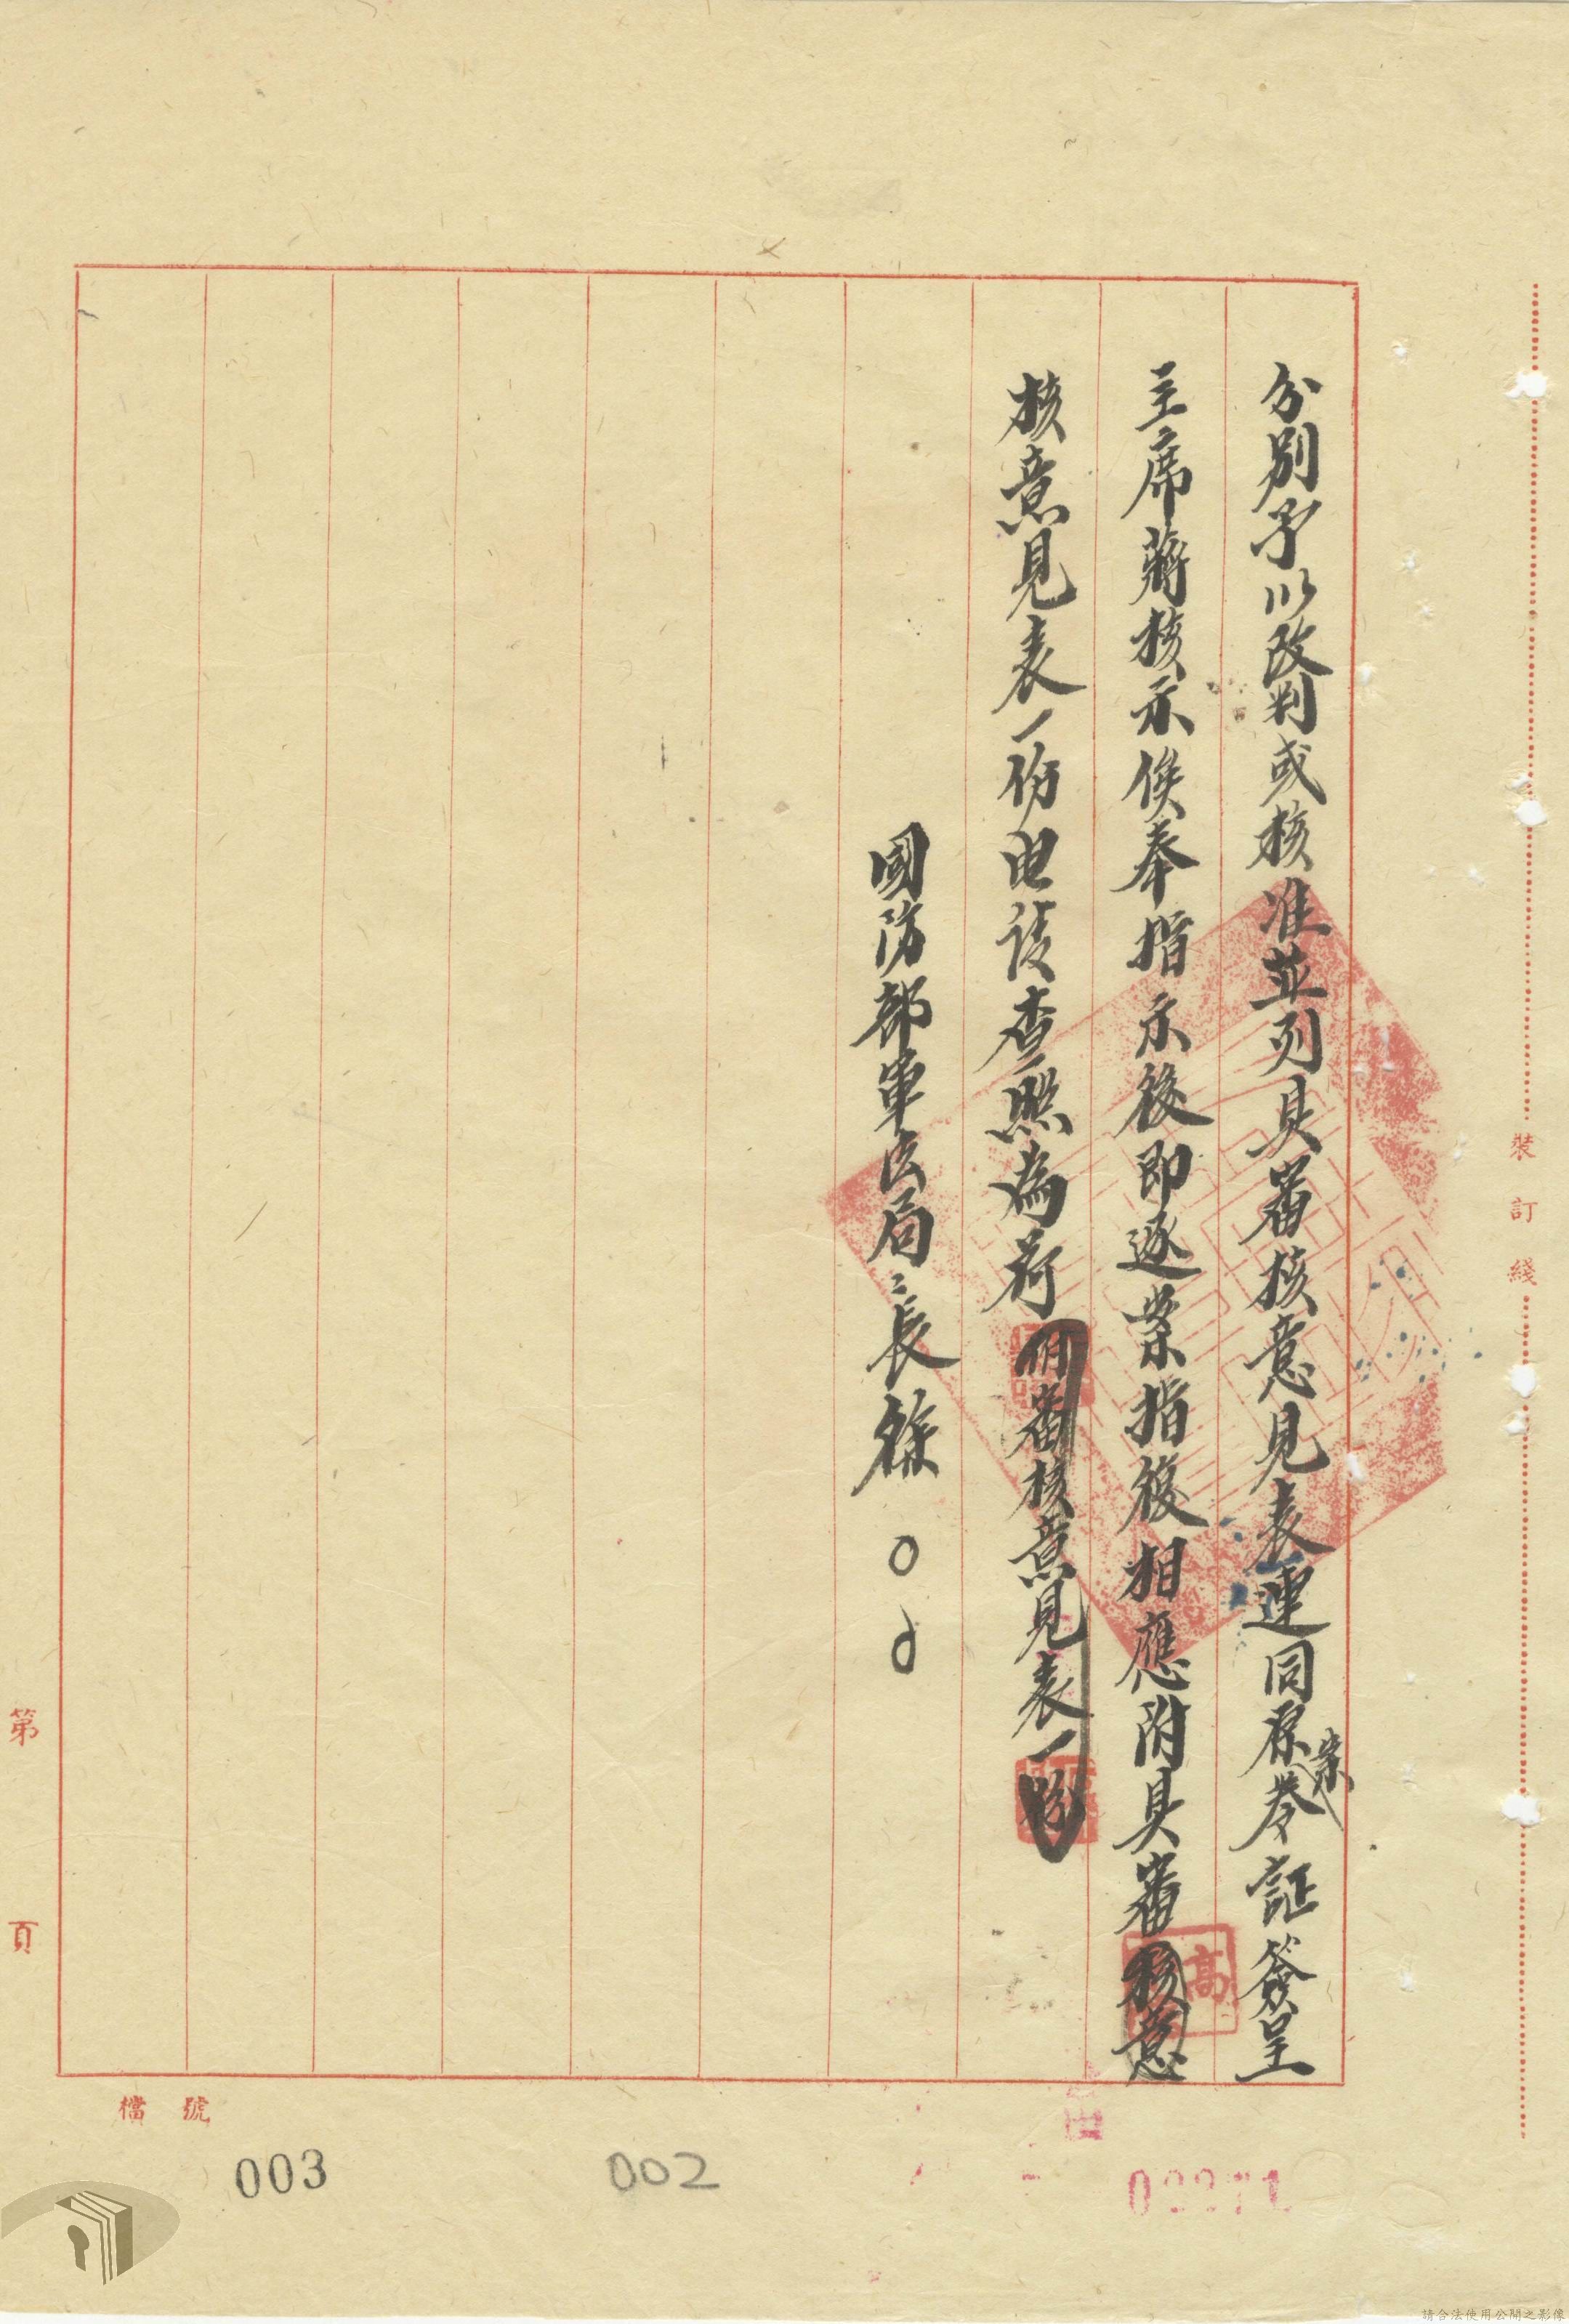 分別予以改判或核准並列具審核意見表連同原卷証簽呈
案
主席蔣核示俟奉指示後即逐案指復相應附具審核意
核意見表一份电请查照為荷附審核意見表一份
國防部軍法局〻長徐○○
高
裝訂綫
第 頁
檔 號
003
002
請合法使用公開之影像